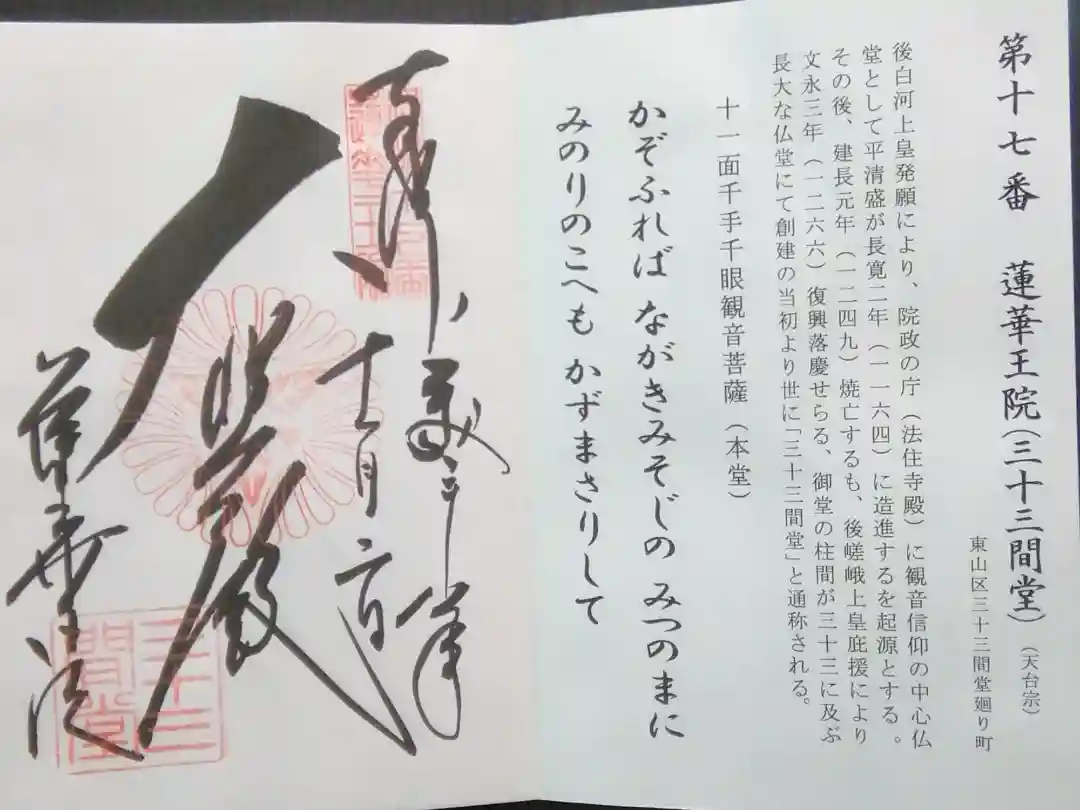 第十七番 蓮華王院(三十三間堂)(天台宗)
東山区三十三間堂廻り町
後白河上皇発願により、院政の庁(法住寺殿)に観音信仰の中心仏
堂として平清盛が長寛二年(一一六四)に造進するを起源とする。
その後、建長元年(一二四九)焼亡するも、後嵯峨上皇庇援により
文永三年(一二六六)復興落慶せらる、御堂の柱間が三十三に及ぶ
長大な仏堂にて創建の当初より世に「三十三間堂」と通称される。
十一面千手千眼観音菩薩(本堂)
かぞふれば ながきみそじの みつのまに
みのりのこへも かずまさりして
奉拝
十一月
大悲殿
蓮華王院
三十三
間堂